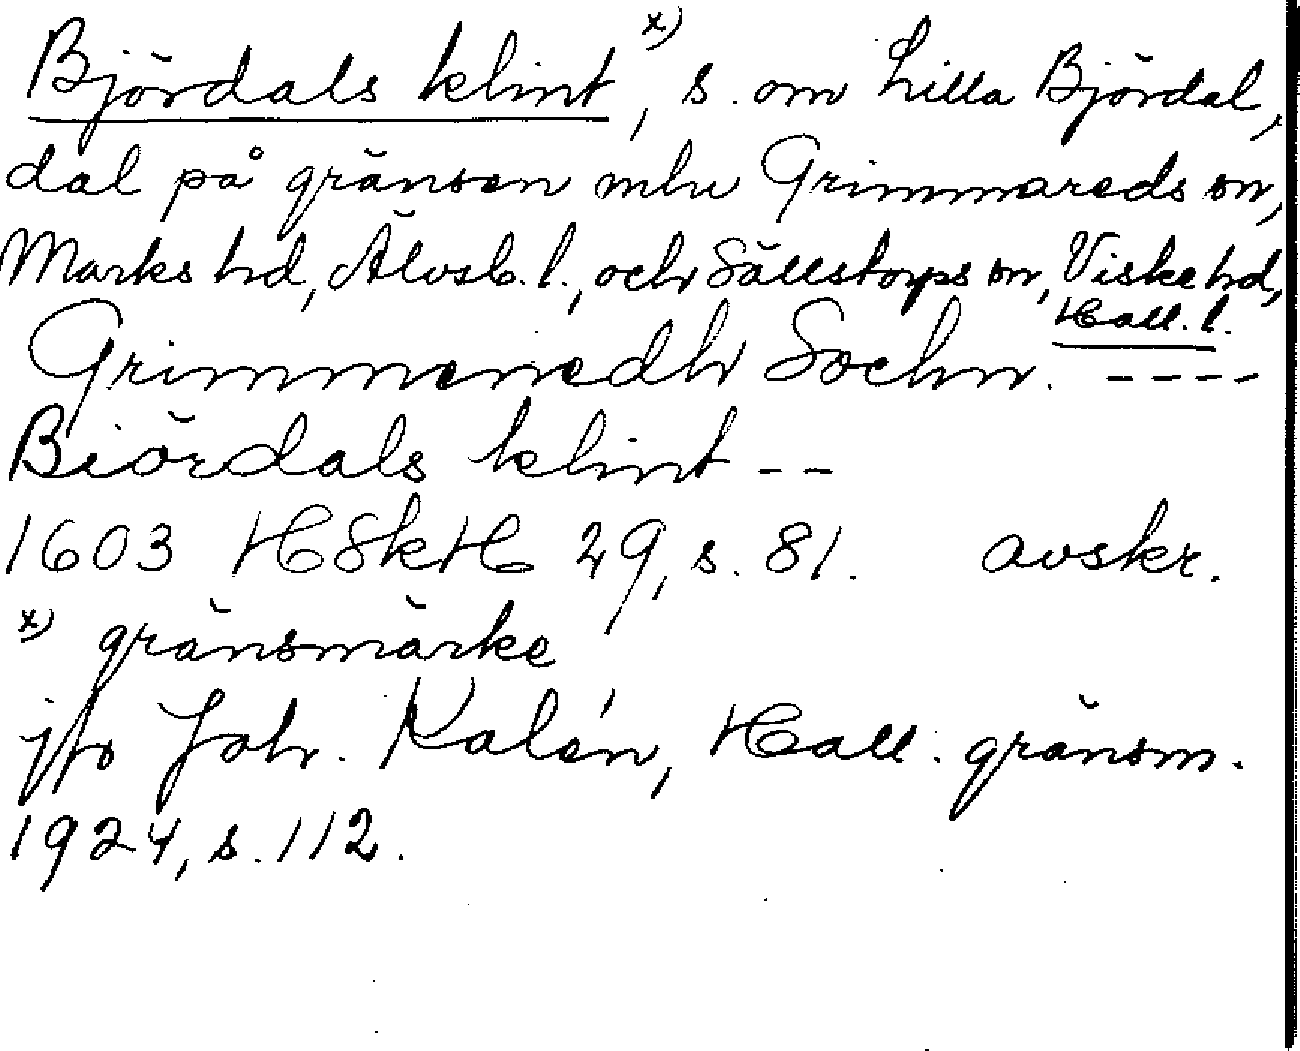 Björdals klint x), s. om Lilla Björdal,
dal på gränsen mln Grimmareds sn,
Marks hd, Älvsb. l., och Sällstorps sn, Viske hd,
Hall. l.
Grimmeredh Sochn. ----
Biördals klint --
1603 HSkH 29, s. 81. avskr.
x) gränsmärke
jfr Joh. Kalén, Hall. gränsm.
1924, s. 112.